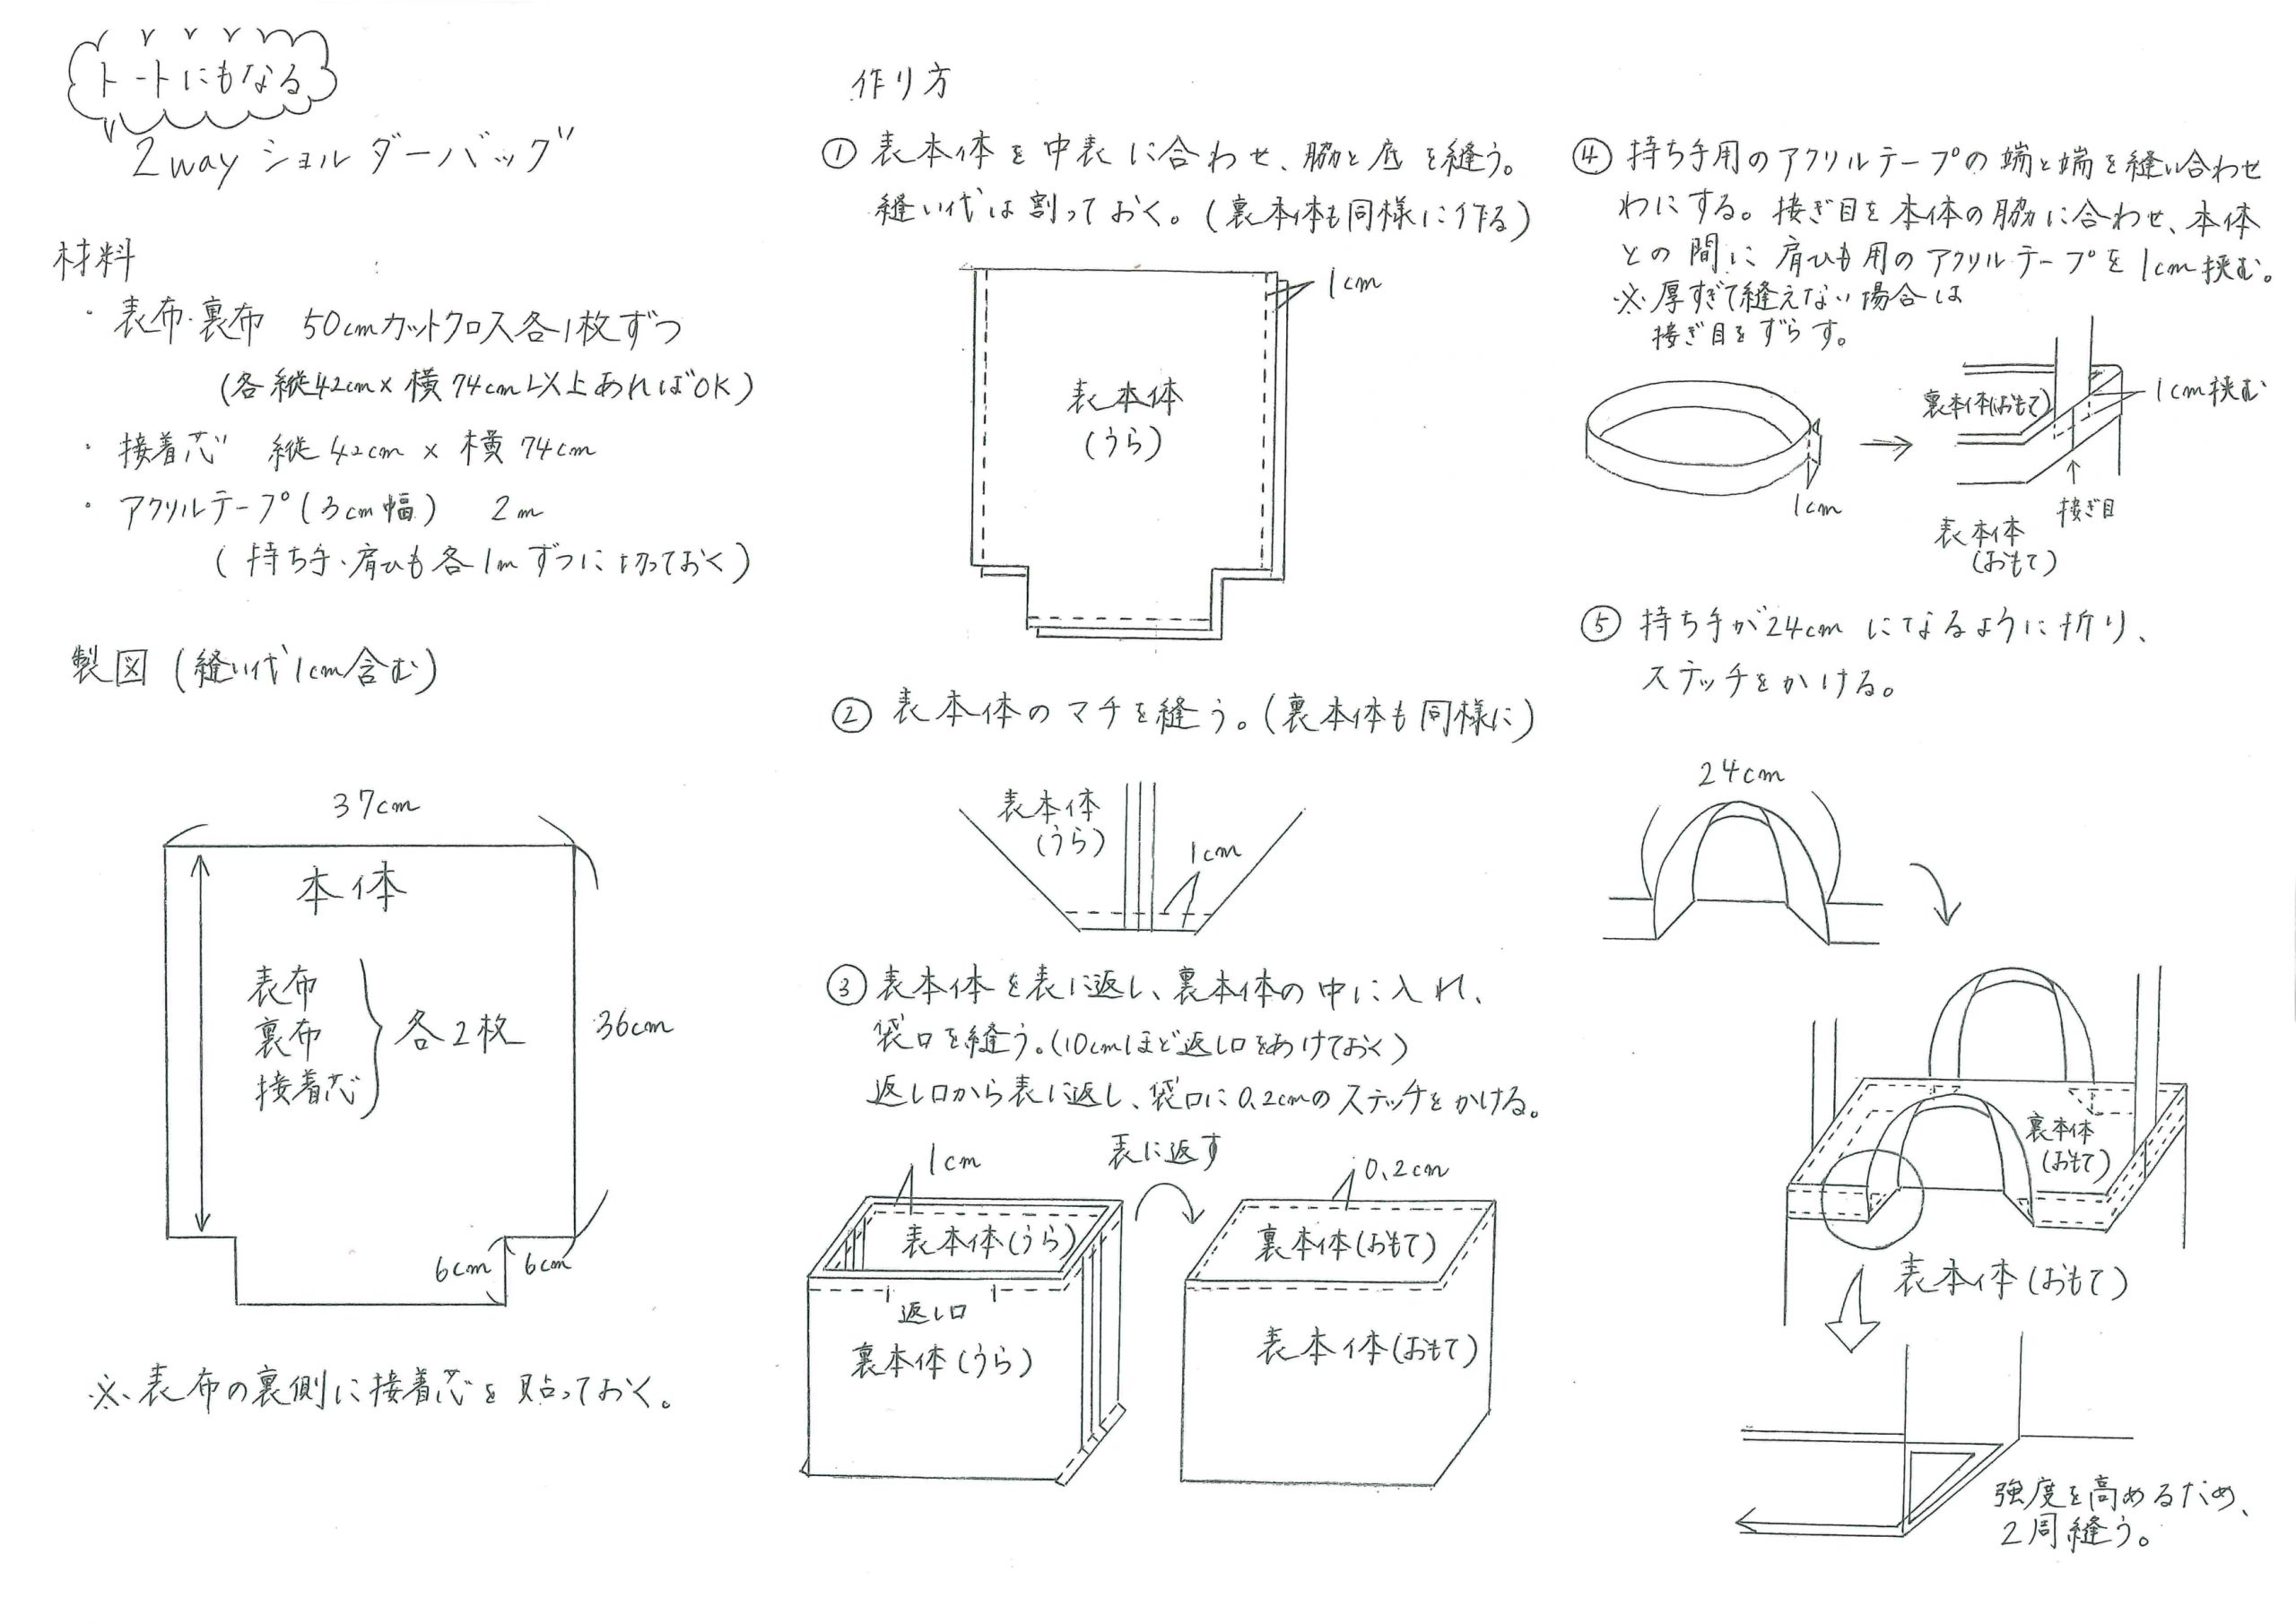 トートにもなる
2wayショルダーバッグ
材料
・表布・裏布 50cmカットクロス各1枚ずつ
(各縦42cm×横74cm以上あればOK)
・接着芯 縦42cm×横74cm
・アクリルテープ(3cm幅) 2m
(持ち手・肩ひも各1mずつに切っておく)
製図(縫い代1cm含む)
37cm
本体
表布
裏布
接着芯
各2枚
36cm
6cm
6cm
※表布の裏側に接着芯を貼っておく。
作り方
① 表本体を中表に合わせ、脇と底を縫う。
縫い代は割っておく。(裏本体も同様に作る)
1cm
表本体
(うら)
② 表本体のマチを縫う。(裏本体も同様に)
表本体
(うら)
1cm
③ 表本体を表に返し、裏本体の中に入れ、
袋口を縫う。(10cmほど返し口をあけておく)
返し口から表に返し、袋口に0.2cmのステッチをかける。
1cm
表に返す
0.2cm
表本体(うら)
返し口
裏本体(うら)
裏本体(おもて)
表本体(おもて)
④ 持ち手用のアクリルテープの端と端を縫い合わせ
わにする。接ぎ目を本体の脇に合わせ、本体
との間に肩ひも用のアクリルテープを1cm挟む。
※厚すぎて縫えない場合は
接ぎ目をずらす。
1cm
裏本体(おもて)
1cm挟む
接ぎ目
表本体
(おもて)
⑤ 持ち手が24cmになるように折り、
ステッチをかける。
24cm
裏本体
(おもて)
表本体(おもて)
強度を高めるため、
2周縫う。